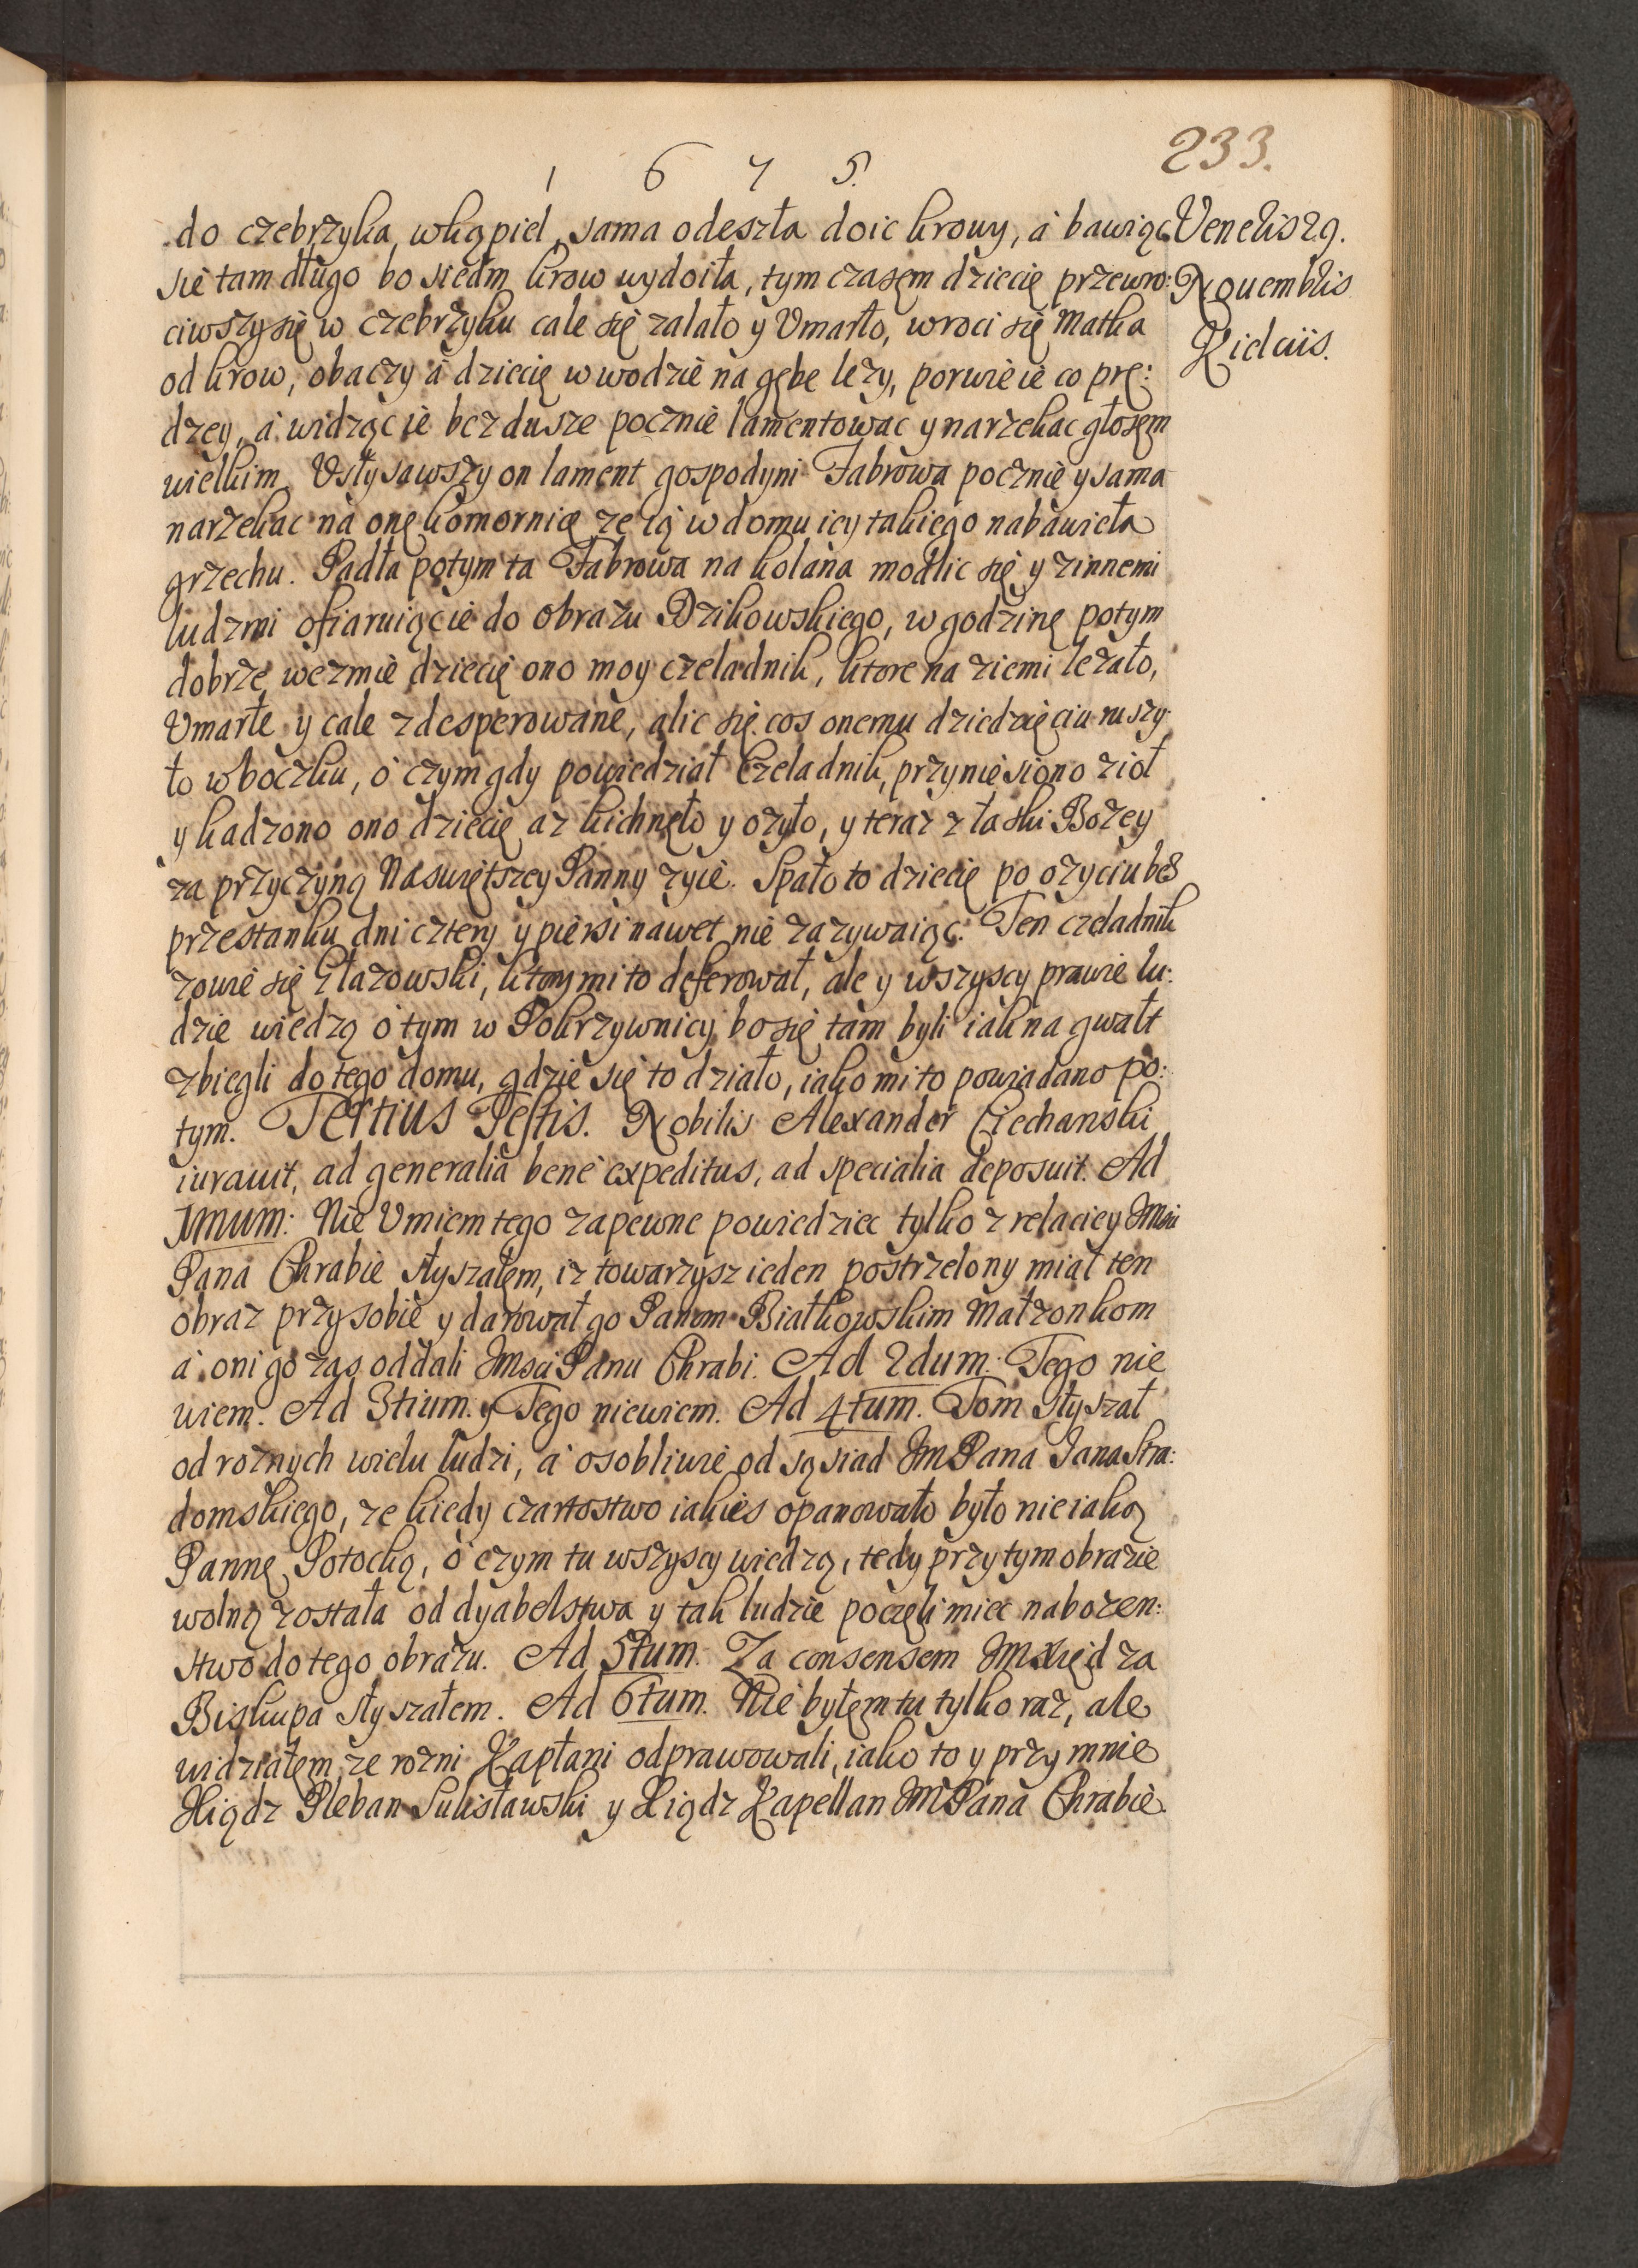 233.
1 6 7 5.
do czebrzyka wkąpiel, sama odeszła doic krowy, á bawiąc
się tam długo bo siedm krow wydoiła, tym czasęm dziecię przewro:
ciwszy się w czebrzyku cale się zalało y Vmarło, wroci się Matka
od krow, obaczy á dziecię w wodzie na gębe lezy, porwie ie co prę:
dzey, á widząc ie bez dusze pocznie lamentowac y narzekac głosęm
wielkim. Vsłysawszy on lament gospodyni Fabrowa pocznie y sama
narzekac na onę komornicę ze ią w domu icy takiego nabawieła
grzechu. Padła potym ta Fabrowa na kolana modlic się y zinnemi
ludzmi ofiaruiąc ie do obrazu Dzikowskiego, w godzinę potym
dobrze wezmie dziecię ono moy czeladnik, ktore na ziemi lezało,
Vmarłe y cale zdesperowane, alic się cos onemu dziedzięciu ruszy
ło w boczku, o czym gdy powiedział Czeladnik, przyniesiono zioł
y kadzono ono dziecię az kichnęło y ozyło, y teraz z łaski Bozey
za przyczyną Naswiętszey Panny zyie. Spało to dziecię po ozyciu bez
przestanku dni cztery y piersi nawet nie zazywaiąc. Ten czeladnik
zowie się Głazowski, ktory mi to deferował, ale y wszyscy prawie lu:
dzie wiedzą o tym w Pokrzywnicy, bo się tam byli iak na gwałt
zbiegli do tego domu, gdzie się to działo, iako mi to powiadano po:
tym. Tertius Testis. Nobilis Alexander Ciechanski
iurauit, ad generalia bene expeditus, ad specialia deposuit. Ad
1mum: Nie Vmiem tego zapewne powiedziec tylko z relaciey Jmsci
Pana Chrabie słyszałem, iz towarzysz ieden postrzelony miał ten
obraz przy sobie y darował go Panom Białkowskim Małzonkom
á oni go zas oddali Jmsci Panu Chrabi. Ad 2dum. Tego nie
wiem. Ad 3tium. Tego niewiem. Ad 4tum. Tom słyszał
od roznych wielu ludzi, á osobliwie od sąsiad Jm Pana Jana Stra:
domskiego, ze kiedy czartostwo iakies opanowało było nieiaką
Pannę Potocką, o czym tu wszyscy wiedzą, tedy przy tym obrazie
wolną została od dyabelstwa y tak ludzie poczęli miec nabozen:
stwo do tego obrazu. Ad 5tum. Za consensem Jm Xiędza
Biskupa słyszałem. Ad 6tum. Nie byłęm tu tylko raz, ale
widziałęm ze rozni Kapłani odprawowali, iako to y przy mnie
Xiądz Pleban Sulisławski y Xiądz Kapellan Jm Pana Chrabie.
Veneris 29.
Nouembris
Kielciis.